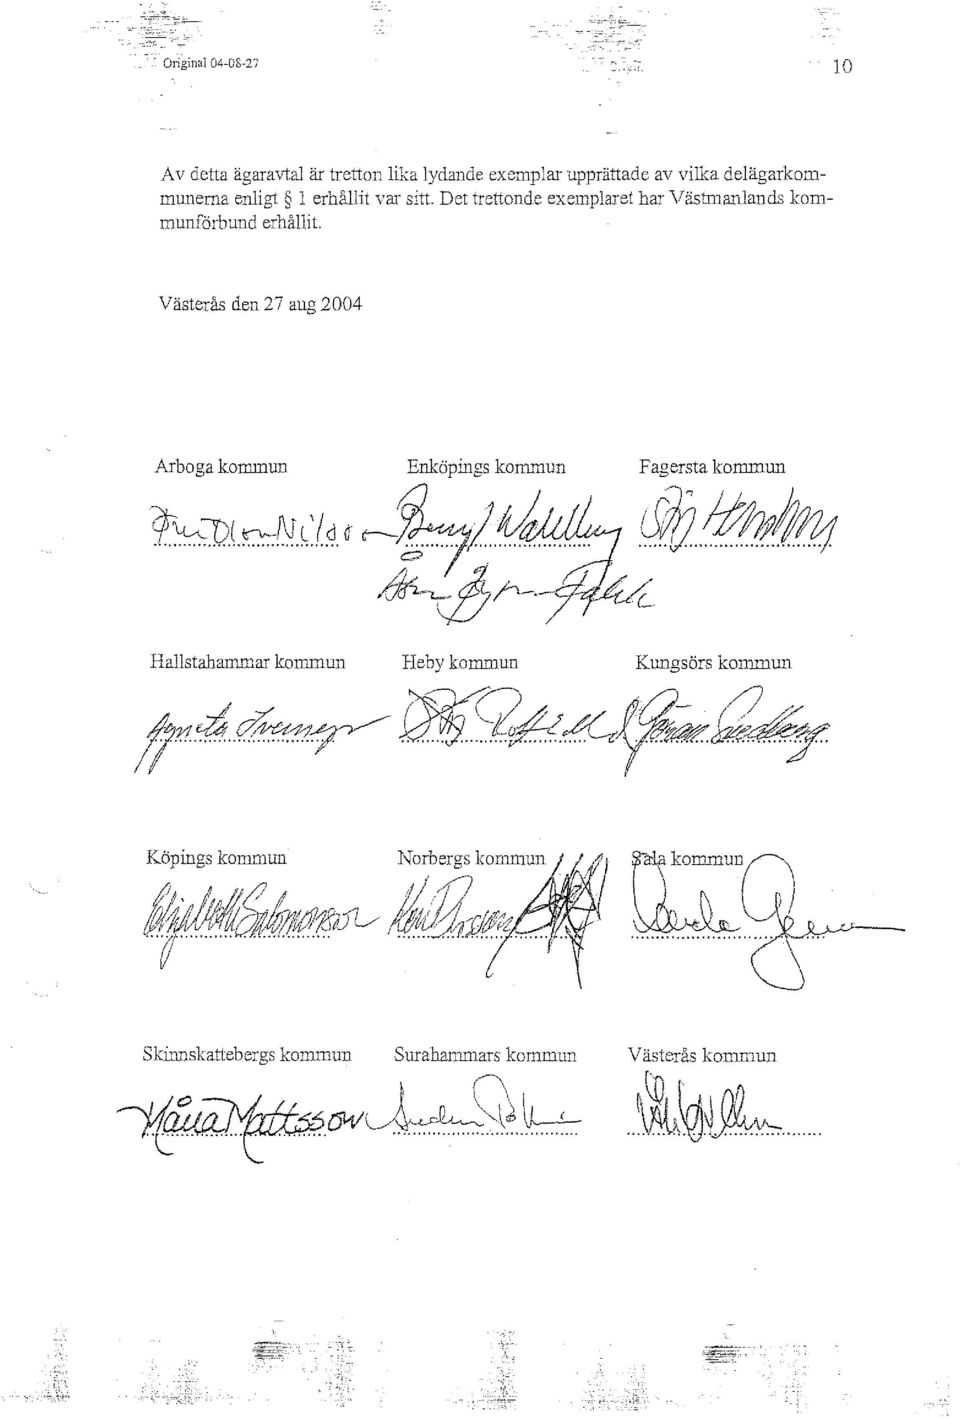 Original 04-08-27
10
Av detta ägaravtal är tretton lika lydande exemplar upprättade av vilka delägarkom-
munerna enligt § 1 erhållit var sitt. Det trettonde exemplaret har Västmanlands kom-
munförbund erhållit.
Västerås den 27 aug 2004
Arboga kommun Enköpings kommun Fagersta kommun
Hallstahammar kommun Heby kommun Kungsörs kommun
Agneta Göran Svedberg
Köpings kommun Norbergs kommun Sala kommun
Elizabeth Salomonsson
Skinnskattebergs kommun Surahammars kommun Västerås kommun
Måna Mattsson